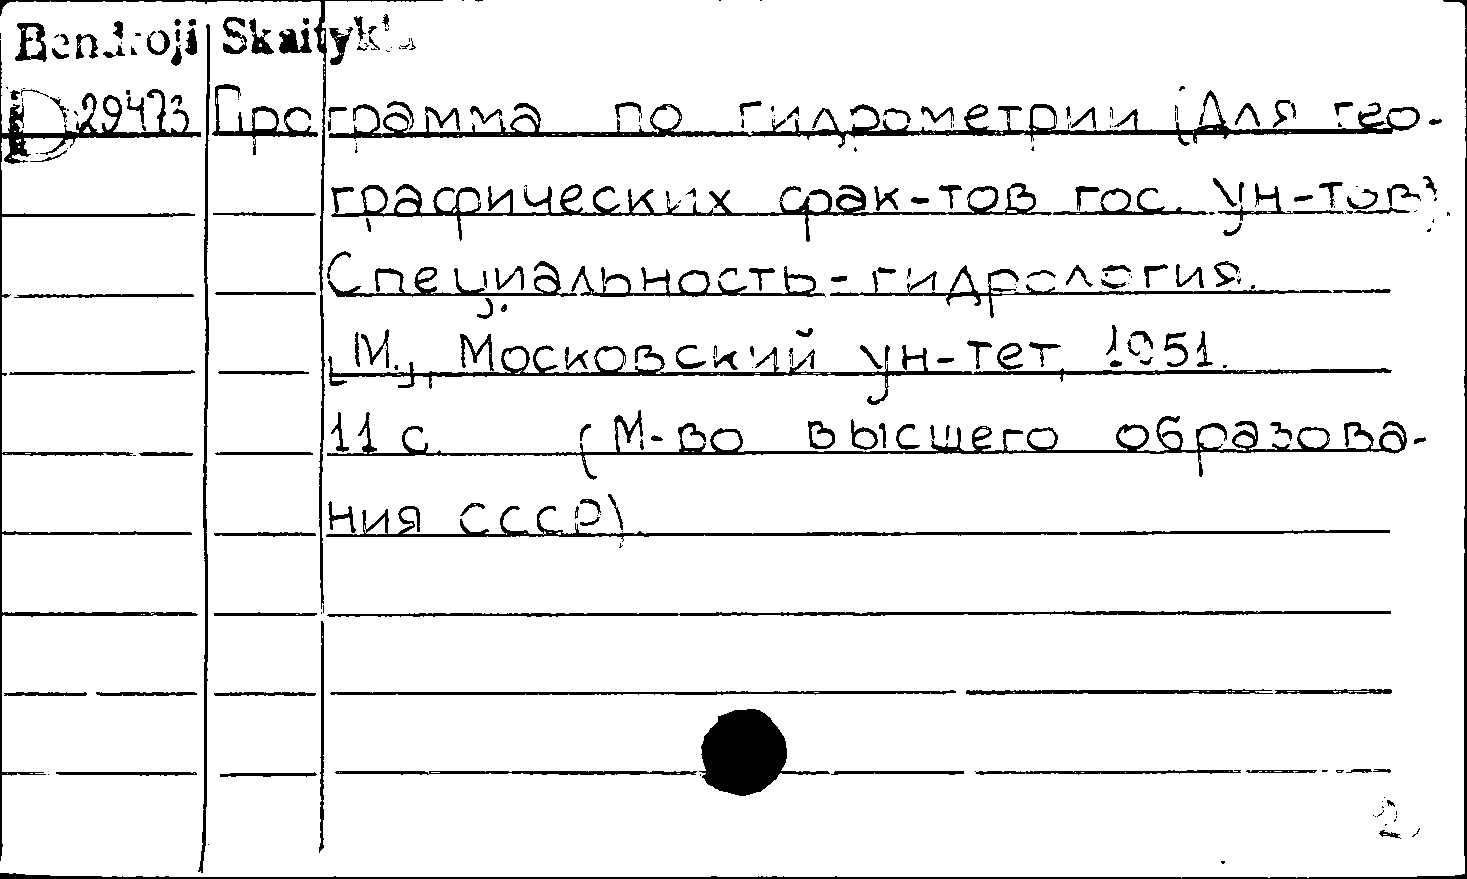 Bendroji Skaitykla
D 29473 Программа по гидрометрии (Для гео-
графических фак-тов гос. ун-тов).
Специальность - гидрология.
[М.], Московский ун-тет, 1951.
11 с. (М-во высшего образова-
ния СССР)
2